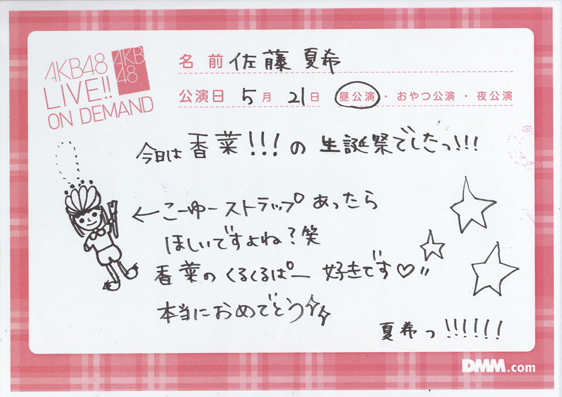 AKB48
LIVE!!
ON DEMAND
AKB
48
名前 佐藤夏希
公演日 5月 21日 昼公演・おやつ公演・夜公演
今日は香菜!!!の生誕祭でしたっ!!!
←こーゆーストラップあったら
ほしいですよね?笑
香菜のくるくるぱー好きです♡!!
本当におめでとう
夏希っ!!!!!!
DMM.com